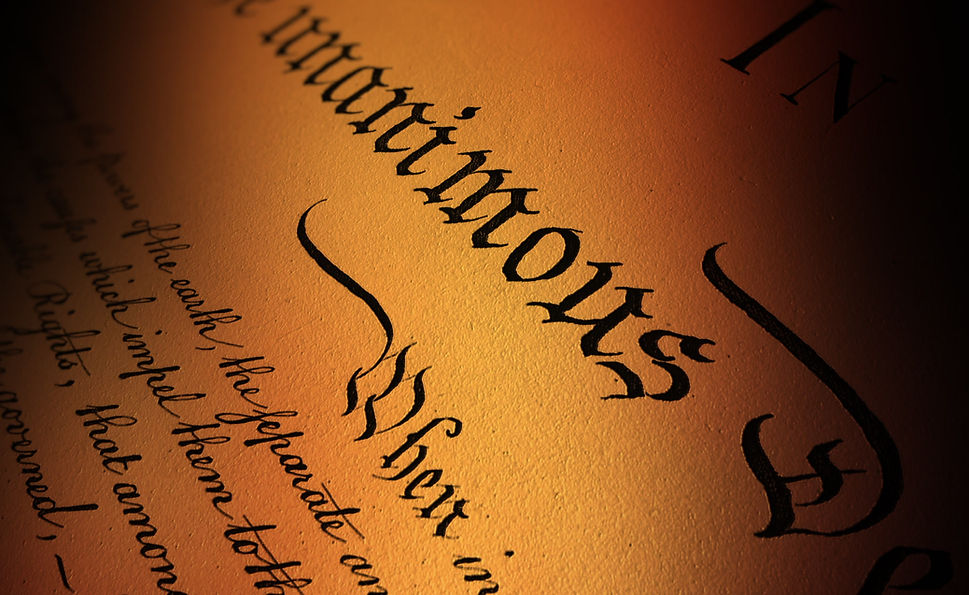 IN
unanimous D
When in
the Powers of the earth, the separate an
which impel them to th
Rights, that amon
governed, —